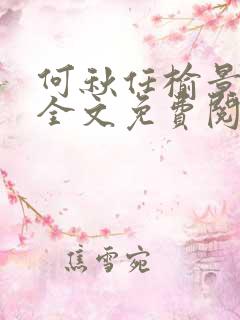 何秋任榆景
全文免費閱
焦雪宛